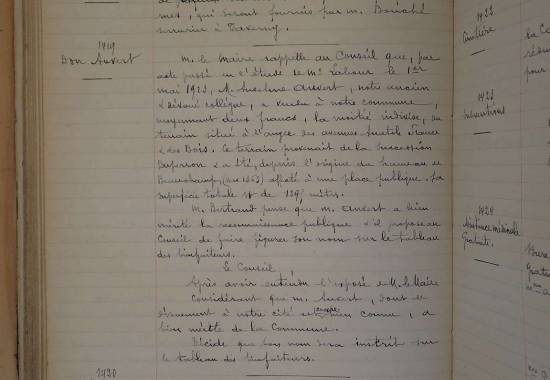 mes, qui seront fournis par M. Bouché
serrurier à Taverny.
1419
Don Auvert
M. le Maire rappelle au Conseil que, par
acte passé en l'Etude de Me Lahour le 1er
mai 1923, M. Auvert, notre ancien
& dévoué collègue, a vendu à notre commune,
moyennant deux francs, la moitié indivise, du
terrain situé à l'angle des avenues Anatole France
& des Bois. Ce terrain provenait de la succession
Duperron & a été, depuis l'origine du hameau de
Beauchamp, affecté à une place publique. Sa
superficie totale est de mètres.
M. Bertrand pense que M. Auvert a bien
mérité la reconnaissance publique & il propose au
Conseil de faire figurer son nom sur le tableau
des bienfaiteurs.
Le Conseil
Après avoir entendu l'exposé de M. le Maire
Considérant que M. Auvert, dont le
dévouement à notre cité est bien connu, a
bien mérité de la Commune.
Décide que son nom sera inscrit sur
le tableau des bienfaiteurs.
1420
1422
1423
1424
Assistance médicale
Gratuite.